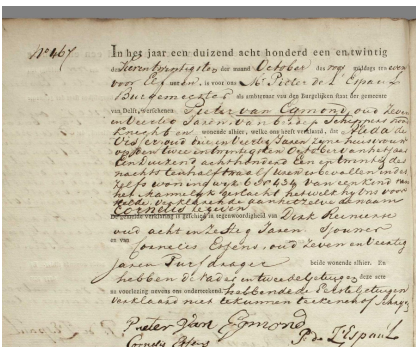 N° 467
In het jaar een duizend acht honderd een en twintig
den Vierentwintigsten der maand October des voor middags ten even
voor Elf uren, is voor ons Mr Pieter de L'Espaul
Burgemeester als ambtenaar van den Burgelijken staat der gemeente
van Delft, verschenen Pieter van Egmond, oud Zeven
en Veertig Jaren, van beroep Schippers
Knecht en wonende alhier, welke ons heeft verklaard, dat Alida de
Vis, oud drie en Veertig Jaren Zyne huisvrouw
op den twee en twintigsten October van het jaar
Een duizend achthonderd een en twintig des
nachts ten half twaalf uren is bevallen in des
zelfs woning wyk 6 N° 434 van een Kind van
het Mannelyk geslacht hetwelk hy ons voor
stelde, verklarende aan hetzelve de naam
Cornelis te geven
De gemelde verklaring is geschied in tegenwoordigheid van Dirk Reinierse
oud acht en Zestig Jaren Sjouwer
en van
Cornelis Effens, oud Zeven en Veertig
Jaren Turfdrager beide wonende alhier. En
hebben de Vader en tweede getuigen deze acte
na voorlezing nevens ons onderteekend, hebbende de Eerste getuigen
verklaard niet te kunnen teekenen of schryven
Pieter Van Egmond
Cornelis Effens P. de L'Espaul